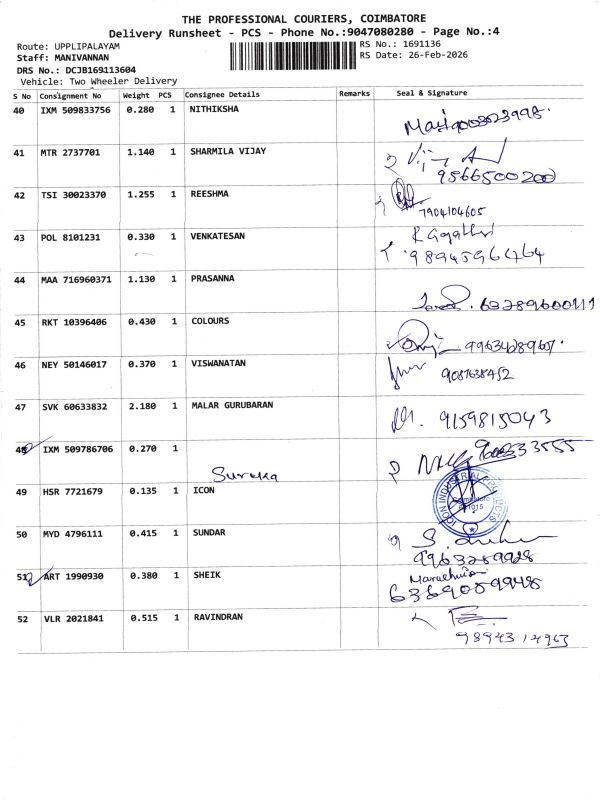 THE PROFESSIONAL COURIERS, COIMBATORE
Delivery Runsheet - PCS - Phone No.:9047080280 - Page No.:4
Route: UPPLIPALAYAM
RS No.: 1691136
Staff: MANIVANNAN
RS Date: 26-Feb-2026
DRS No.: DCJB169113604
Vehicle: Two Wheeler Delivery
S No Consignment No Weight PCS Consignee Details Remarks Seal & Signature
40 IXM 509833756 0.280 1 NITHIKSHA
41 MTR 2737701 1.140 1 SHARMILA VIJAY
9566500200
42 TSI 30023370 1.255 1 REESHMA
7904104605
43 POL 8101231 0.330 1 VENKATESAN
9894596464
44 MAA 716960371 1.130 1 PRASANNA
45 RKT 10396406 0.430 1 COLOURS
46 NEY 50146017 0.370 1 VISWANATAN
9087638452
47 SVK 60633832 2.180 1 MALAR GURUBARAN
9159815043
48 IXM 509786706 0.270 1
Sureka
49 HSR 7721679 0.135 1 ICON
ICON INDUSTRIAL PRODUCTS
50 MYD 4796111 0.415 1 SUNDAR
9963289928
51 ART 1990930 0.380 1 SHEIK
52 VLR 2021841 0.515 1 RAVINDRAN